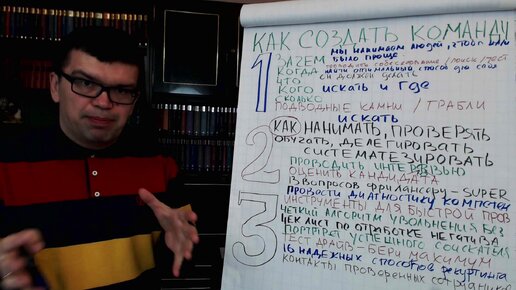 КАК СОЗДАТЬ КОМАНДУ
1 ЗАЧЕМ мы нанимаем людей, чтоб нам было проще
КОГДА проводить собеседование / поиск / тест
ЧТО найти оптимальный способ для себя
он должен делать
КОГО искать и где
СКОЛЬКО
ПОДВОДНЫЕ КАМНИ / ГРАБЛИ
искать
2 КАК НАНИМАТЬ, ПРОВЕРЯТЬ
ОБУЧАТЬ, ДЕЛЕГИРОВАТЬ
СИСТЕМАТЕЗИРОВАТЬ
ПРОВОДИТЬ ИНТЕРВЬЮ
ОЦЕНИТЬ КАНДИДАТА
13 ВОПРОСОВ ФРИЛАНСЕРУ - SUPER
3 ПРОВЕСТИ ДИАГНОСТИКУ КОМПЕТЕН
ИНСТРУМЕНТЫ ДЛЯ БЫСТРОЙ ПРОВ
ЧЕТКИЙ АЛГОРИТМ УВОЛЬНЕНИЯ БЕЗ
ЧЕК ЛИСТ ПО ОТРАБОТКЕ НЕГАТИВА
ПОРТРЕТ УСПЕШНОГО СОИСКАТЕЛЯ
ТЕСТ ДРАЙВ - БЕРИ МАКСИМУМ
16 НАДЕЖНЫХ СПОСОБОВ РЕКРУТИНГА
КОНТАКТЫ ПРОВЕРЕННЫХ СОТРУДНИКОВ